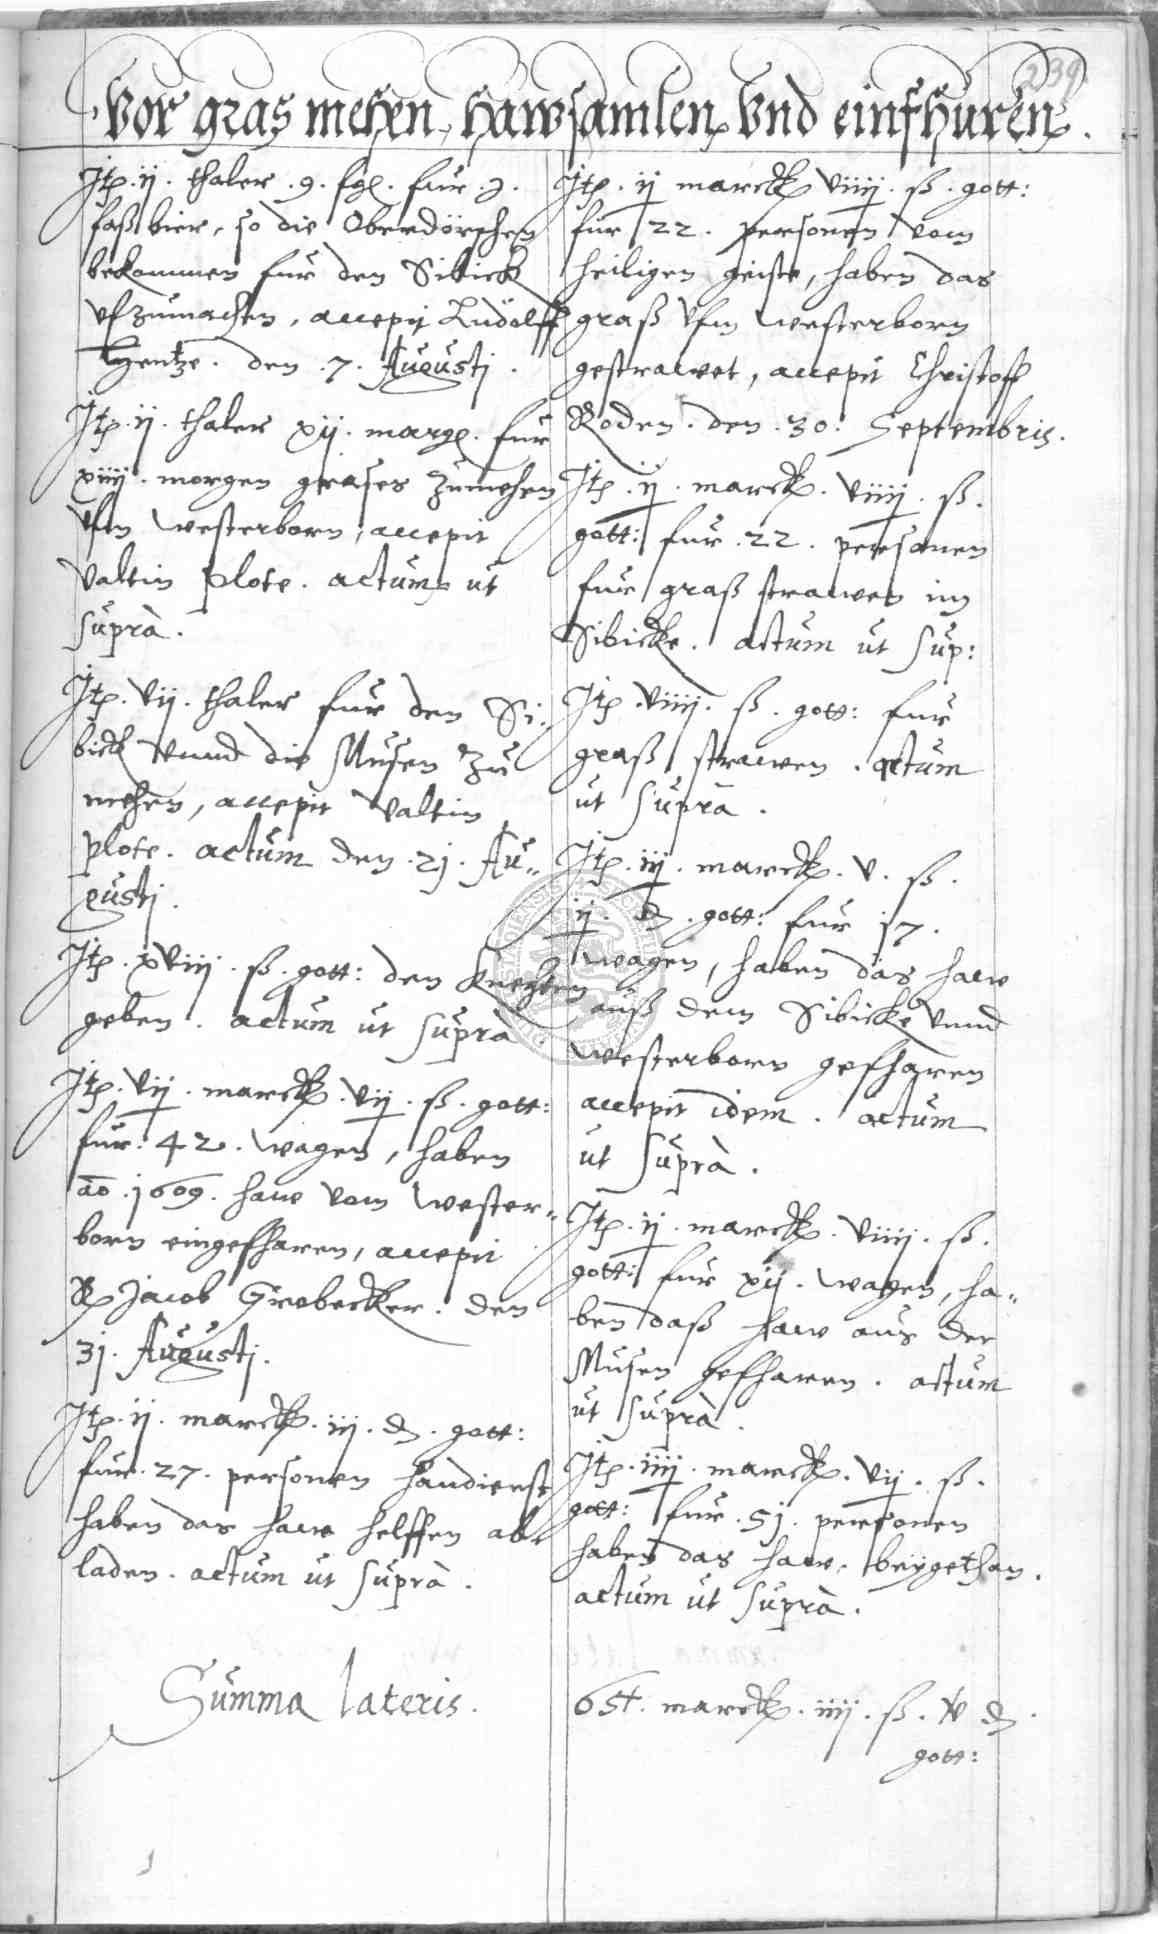 239
Vor gras mehen, Hawsamlen, Vnd einfhuren.
Itp. ij. thaler .9. fgl. fur .j.
faß bier, so die Oberdörschen
bekommen fur den Sibick
vfzumachen, accepit Ludolff
Hentze. den .7. Augustj.
Itp. ij. thaler xij. margl. fur
xiiij. morgen grases zumehen
vfm Westerborn, accepit
Valtin Plote. actum ut
suprà.
Itp. vij. thaler fur den Si-
bick vnnd die Musen zu
mehen, accepit Valtin
Plote. actum den .2j. Au-
gustj.
Itp. xviij. ß. gott: den knechten
geben. actum ut suprà.
Itp. vij. marck. vij. ß. gott:
fur: 42. wagen, haben
aõ .1609. haw vom Wester-
born eingefharen, accepit
Jacob Grobecker. den
3j. Augustj.
Itp. ij. marck. iij. d. gott:
fur .27. personen handienst
haben das haw helffen ab-
laden. actum ut suprà.
Itp. ij marck viiij. ß. gott:
fur 22. personen vom
heiligen geiste, haben das
graß vfm Westerborn
gestrawet, accepit Christoff
Roden. den .30. Septembris.
Itp. ij. marck. viiij. ß.
gott: fur .22. personen
fur graß strawen im
Sibicke. actum ut sup:
Itp. viiij. ß. gott: fur
graß strawen. actum
ut suprà.
Itp. iij. marck. v. ß.
ij. d. gott: fur j7.
wagen, haben das haw
auß dem Sibicke vnnd
Westerborn gefharen
accepit idem. actum
ut suprà.
Itp. ij. marck. viiij. ß.
gott: fur xij. wagen, ha-
ben daß haw aus der
Musen gefharen. actum
ut suprà.
Itp. iiij. marck. vij. ß.
gott: fur .5j. personen
haben das haw beygethan.
actum ut suprà.
Summa lateris. 65+. marck. iiij. ß. v d.
gott: